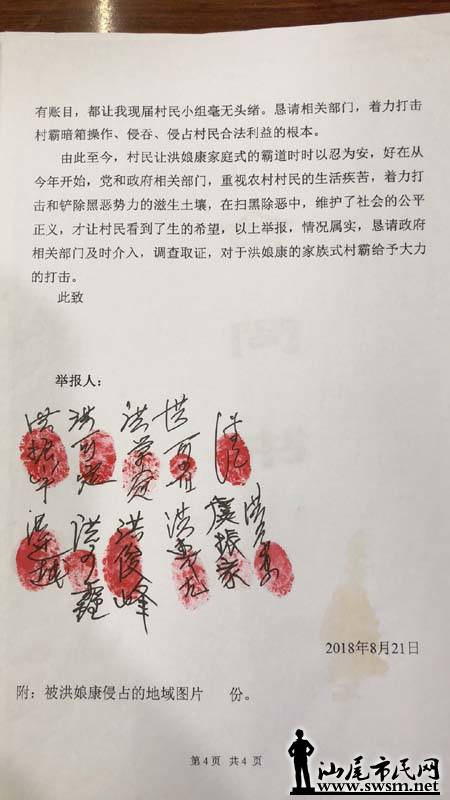 有账目，都让我现届村民小组毫无头绪。恳请相关部门，着力打击
村霸暗箱操作、侵吞、侵占村民合法利益的根本。
由此至今，村民让洪娘康家庭式的霸道时时以忍为安，好在从
今年开始，党和政府相关部门，重视农村村民的生活疾苦，着力打
击和铲除黑恶势力的滋生土壤，在扫黑除恶中，维护了社会的公平
正义，才让村民看到了生的希望，以上举报，情况属实，恳请政府
相关部门及时介入，调查取证，对于洪娘康的家族式村霸给予大力
的打击。
此致
举报人：
洪俊峰
2018年8月21日
附：被洪娘康侵占的地域图片 份。
第4页 共4页
汕尾市民网
www.swsm.net